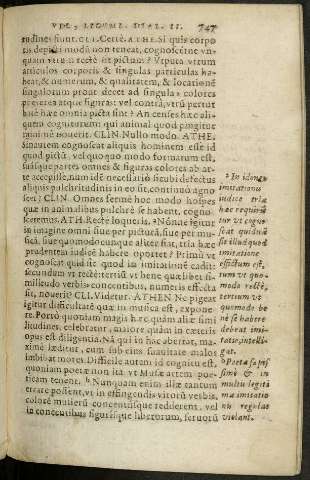 VDE, LEGVM. DIAL. II. 747
tudines sunt. CLI. Certè. ATHE. Si quis corpo
tis depicti modũ non teneat, cognoscet ne vn-
quam vtrum rectè sit pictum? Vtputa vtrum
articulos corporis & singulas particulas ha-
beat, & numerum, & qualitatem, & locationẽ
singulorum prout decet ad singula, & colores
præterea atque figuras: vel contrà, vtrũ pertur
batè hæc omnia picta sint? An censes hæc ali-
quem cogniturum, qui animal quod pingitur
quid nè nouerit. CLIN. Nullo modo. ATHE.
Sin autem cognoscat aliquis hominem esse id
quod pictũ, vel quo quo modo formatum est,
suásque partes omnes & figuras colores ab ar-
te accepisse, num idẽ necessariò sicubi defectus
aliquis pulchritudinis in eo sit, continuò agno
scet? CLIN. Omnes fermè hoc modo hospes
quæ in animalibus pulchrè se habent, cogno-
sceremus. ATH. Rectè loqueris. ᵃ Nónne igitur
in imagine omni siue per picturã, siue per musi-
cã, siue quomodocunque aliter fiat, tria hæc
prudentem iudicẽ habere oportet? Primũ vt
cognoscat quid sit quod in imitationẽ cadit:
secundùm vt rectè: tertiũ vt bene quælibet si-
militudo verbis concentibus, numeris effecta
sit, nouerit? CLI. Videtur. ATHEN. Ne pigeat
igitur difficultatẽ quæ in musica est, expone-
re. Porrò quoniam magis hęc quàm aliæ simi
litudines, celebratur, maiore quàm in cæteris
opus est diligentia. Nã qui in hac aberrat, ma-
ximè læditur, cum sub eius suauitate malos
imbibat mores. Difficile autem id cognitu est,
quoniam poetæ non ita vt Musæ artem poe-
ticam tenent. ᵇ Nunquam enim illæ tantum
errare possent, vt in effingendis vitorũ verbis,
colorẽ mulierũ concentumque redderent. vel
in concentibus figurisque liberorum, seruorũ
ᵃ In idoneo
imitationũ
iudice tria
hæc requirũ
tur vt cogno
scat quidnã
sit illud quod
imitatione
effictum est,
tum vt quo-
modo rectè,
tertium vt
quomodo be
nè se habere
debeat imi-
tatio, intelli-
gat.
ᵇ Poetæ sæpis
simè & in
multis legiti
mæ imitatio
nis regulas
violant.